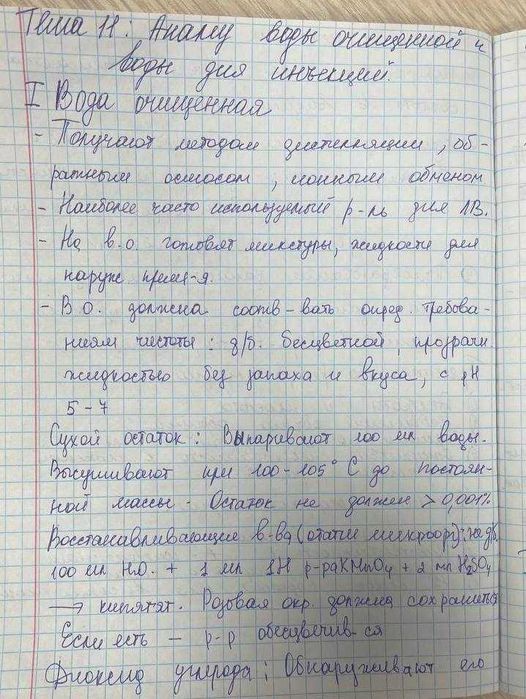 Тема 11: Анализ воды очищенной и
воды для инъекций.
I Вода очищенная
- Получают методом дистилляции, об-
ратным осмосом, ионным обменом
- Наиболее часто используемый р-ль для ЛВ.
- На в.о. готовят микстуры, жидкости для
наруж. прим-я.
- В.О. должна соотв-вать опред. требова-
ниям чистоты: д/б. бесцветной, прозрачн.
жидкостью без запаха и вкуса, с pH
5-7
Сухой остаток: Выпаривают 100 мл воды.
Высушивают при 100-105°C до постоян-
ной массы. Остаток не должен > 0,001%
Восстанавливающие в-ва (отатки микроорг): не д/б.
100 мл H2O. + 1 мл 1Н р-ра KMnO4 + 2 мл H2SO4
→ кипятят. Розовая окр. должна сохраниться
Если есть - р-р обесцвечив-ся
Диоксид углерода: Обнаруживают его